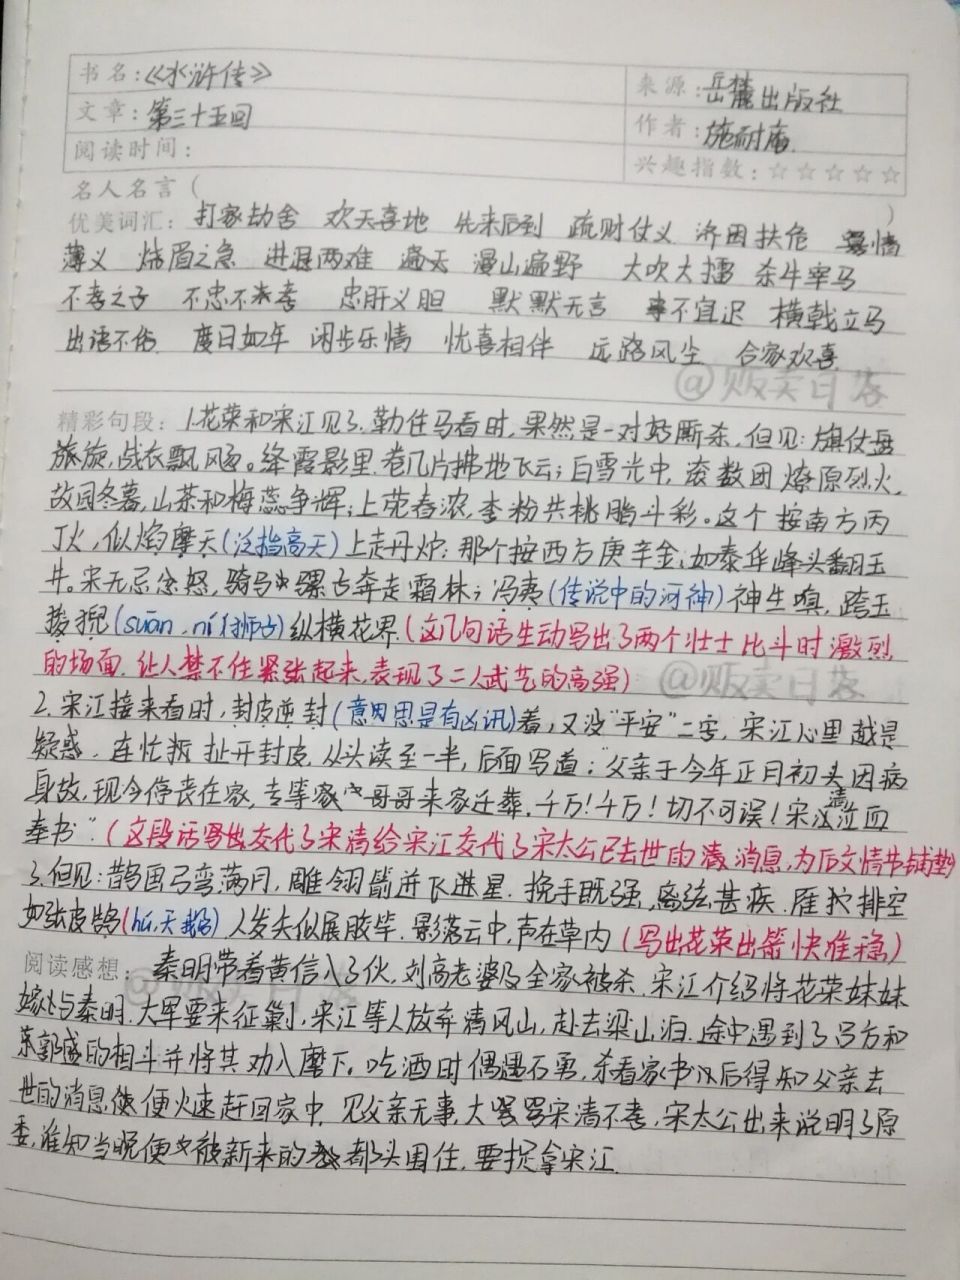 书名：《水浒传》
来源：岳麓出版社
文章：第三十五回
作者：施耐庵
阅读时间：
兴趣指数：☆☆☆☆☆
名人名言（ ）
优美词汇：打家劫舍 欢天喜地 先来后到 疏财仗义 济困扶危 情
薄义 烧眉之急 进退两难 遍天 漫山遍野 大吹大擂 杀牛宰马
不孝之子 不忠不孝 忠肝义胆 默默无言 事不宜迟 横戟立马
出语不俗 度日如年 闲步乐情 忧喜相伴 远路风尘 合家欢喜
@贩卖日落
精彩句段：1.花荣和宋江见了，勒住马看时，果然是一对好厮杀，但见：旗仗盘
旅旋，战衣飘风。绛霞影里，卷几片拂地飞云；白雪光中，滚数团燎原烈火，
故园冬暮，山茶和梅蕊争辉；上苑春浓，李粉共桃脂斗彩。这个按南方丙
丁火，似焰摩天(泛指高天)上走丹炉；那个按西方庚辛金，如泰华峰头翻玉
井。宋无忌忿怒，骑马骡奔走霜林；冯夷(传说中的河神)神生嗔，跨玉
狻猊(suān，ní狮)纵横花界(这几句话生动写出了两个壮士比斗时激烈
的场面，让人禁不住紧张起来，表现了二人武艺的高强)
@贩卖日落
2.宋江接来看时，封皮逆封(意思是有凶讯)着，又没"平安"二字，宋江心里越是
疑惑，连忙扯开封皮，从头读至一半，后面写道：父亲于今年正月初头因病
身故，现今停丧在家，专等哥哥来家迁葬，千万！千万！切不可误！宋清泣血
奉书"(这段话交代了宋清给宋江交代了宋太公已去世的消息，为后文情节铺垫)
3.但见：鹊画弓弯满月，雕翎箭迸飞进星，挽手既强，离弦甚疾，雁排空
如张皮鹄(hú，天鹅)人发矢似展胶竿，影落云中，声在草内(写出花荣出箭快准稳)
阅读感想：秦明带着黄信入了伙，刘高老婆及全家被杀，宋江介绍将花荣妹妹
嫁与秦明，大军要来征剿，宋江等人放弃清风山，赴去梁山泊，途中遇到了吕方和
郭盛的相斗并将其劝入麾下。吃酒时偶遇石勇，看家书后得知父亲去
世的消息便火速赶回家中，见父亲无事，大骂宋清不孝，宋太公出来说明了原
委，谁知当晚便被新来的都头围住，要捉拿宋江